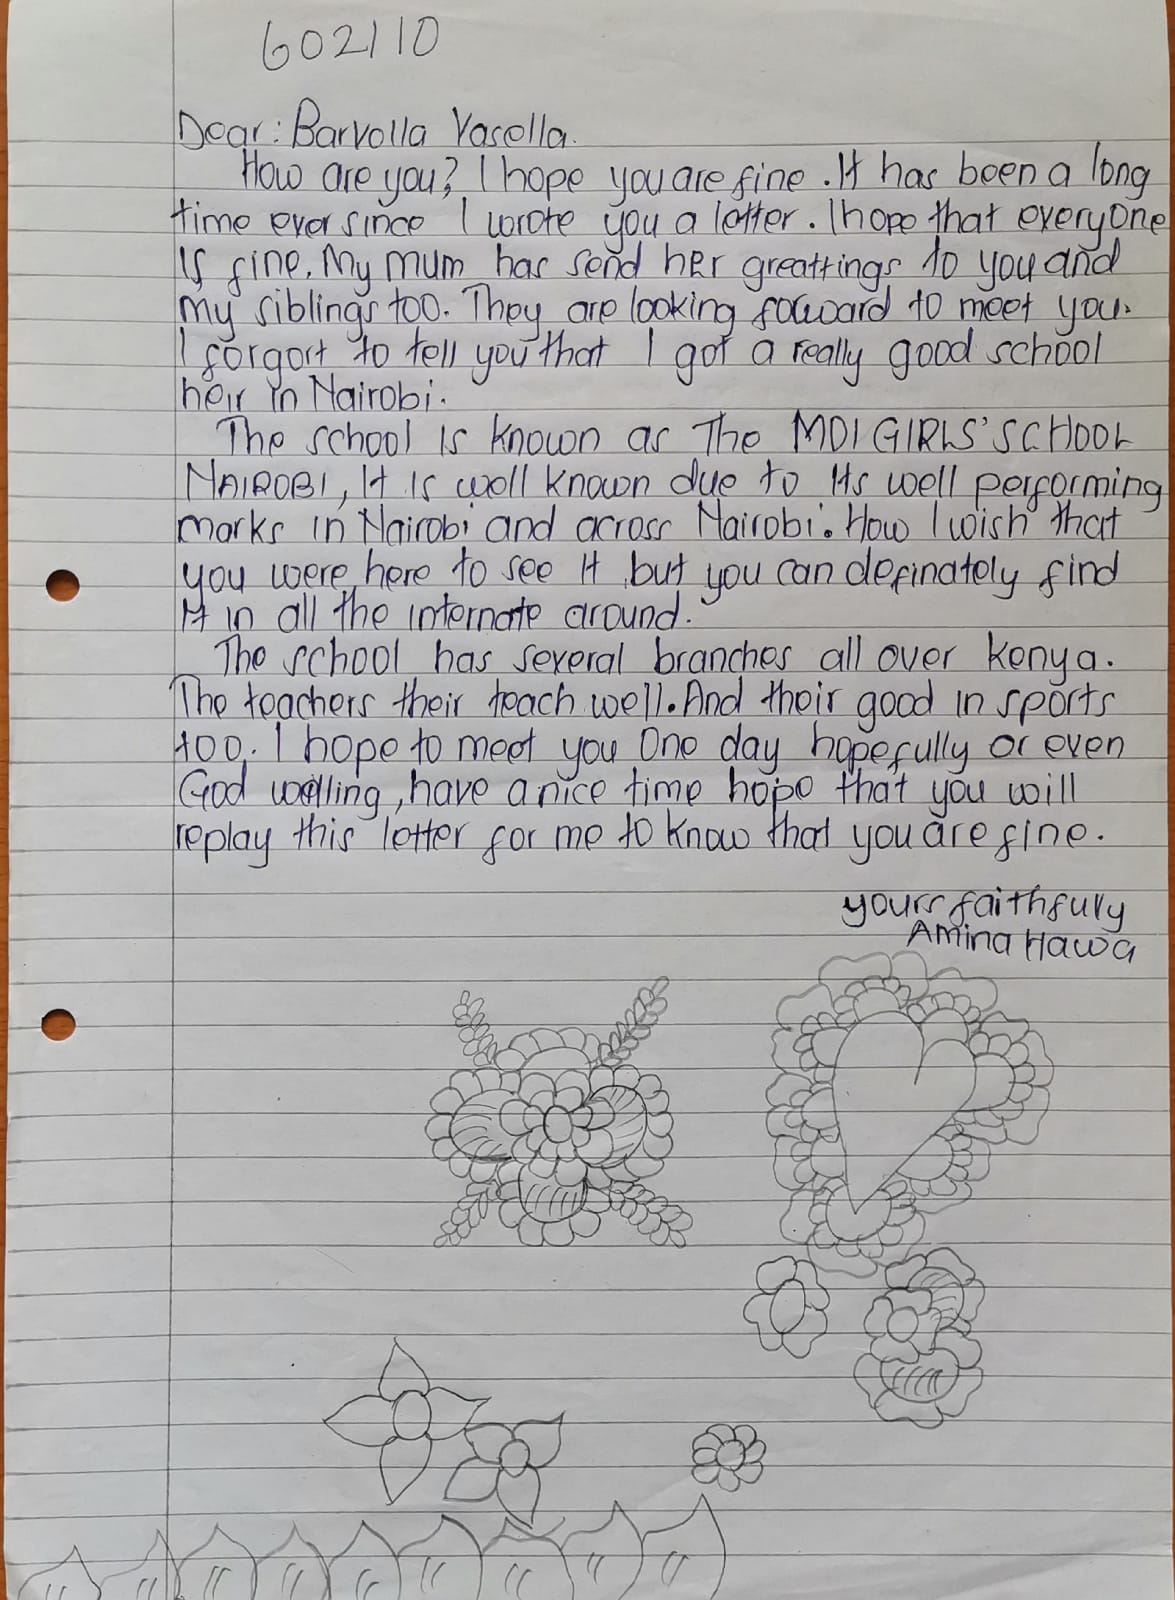 602110
Dear: Barvolla Vasella.
How are you? I hope you are fine. It has been a long
time ever since I wrote you a letter. I hope that everyone
is fine. My mum has send her greattings to you and
my siblings too. They are looking forward to meet you.
I forgort to tell you that I got a really good school
heir in Nairobi.
The school is known as The MOI GIRLS' SCHOOL
NAIROBI, It is well known due to its well performing
marks in Nairobi and across Nairobi. How I wish that
you were here to see it but you can definately find
it in all the internate around.
The school has several branches all over Kenya.
The teachers their teach well. And their good in sports
too. I hope to meet you one day hopefully or even
God welling, have a nice time hope that you will
replay this letter for me to know that you are fine.
yours faithfully
Amina Hawa